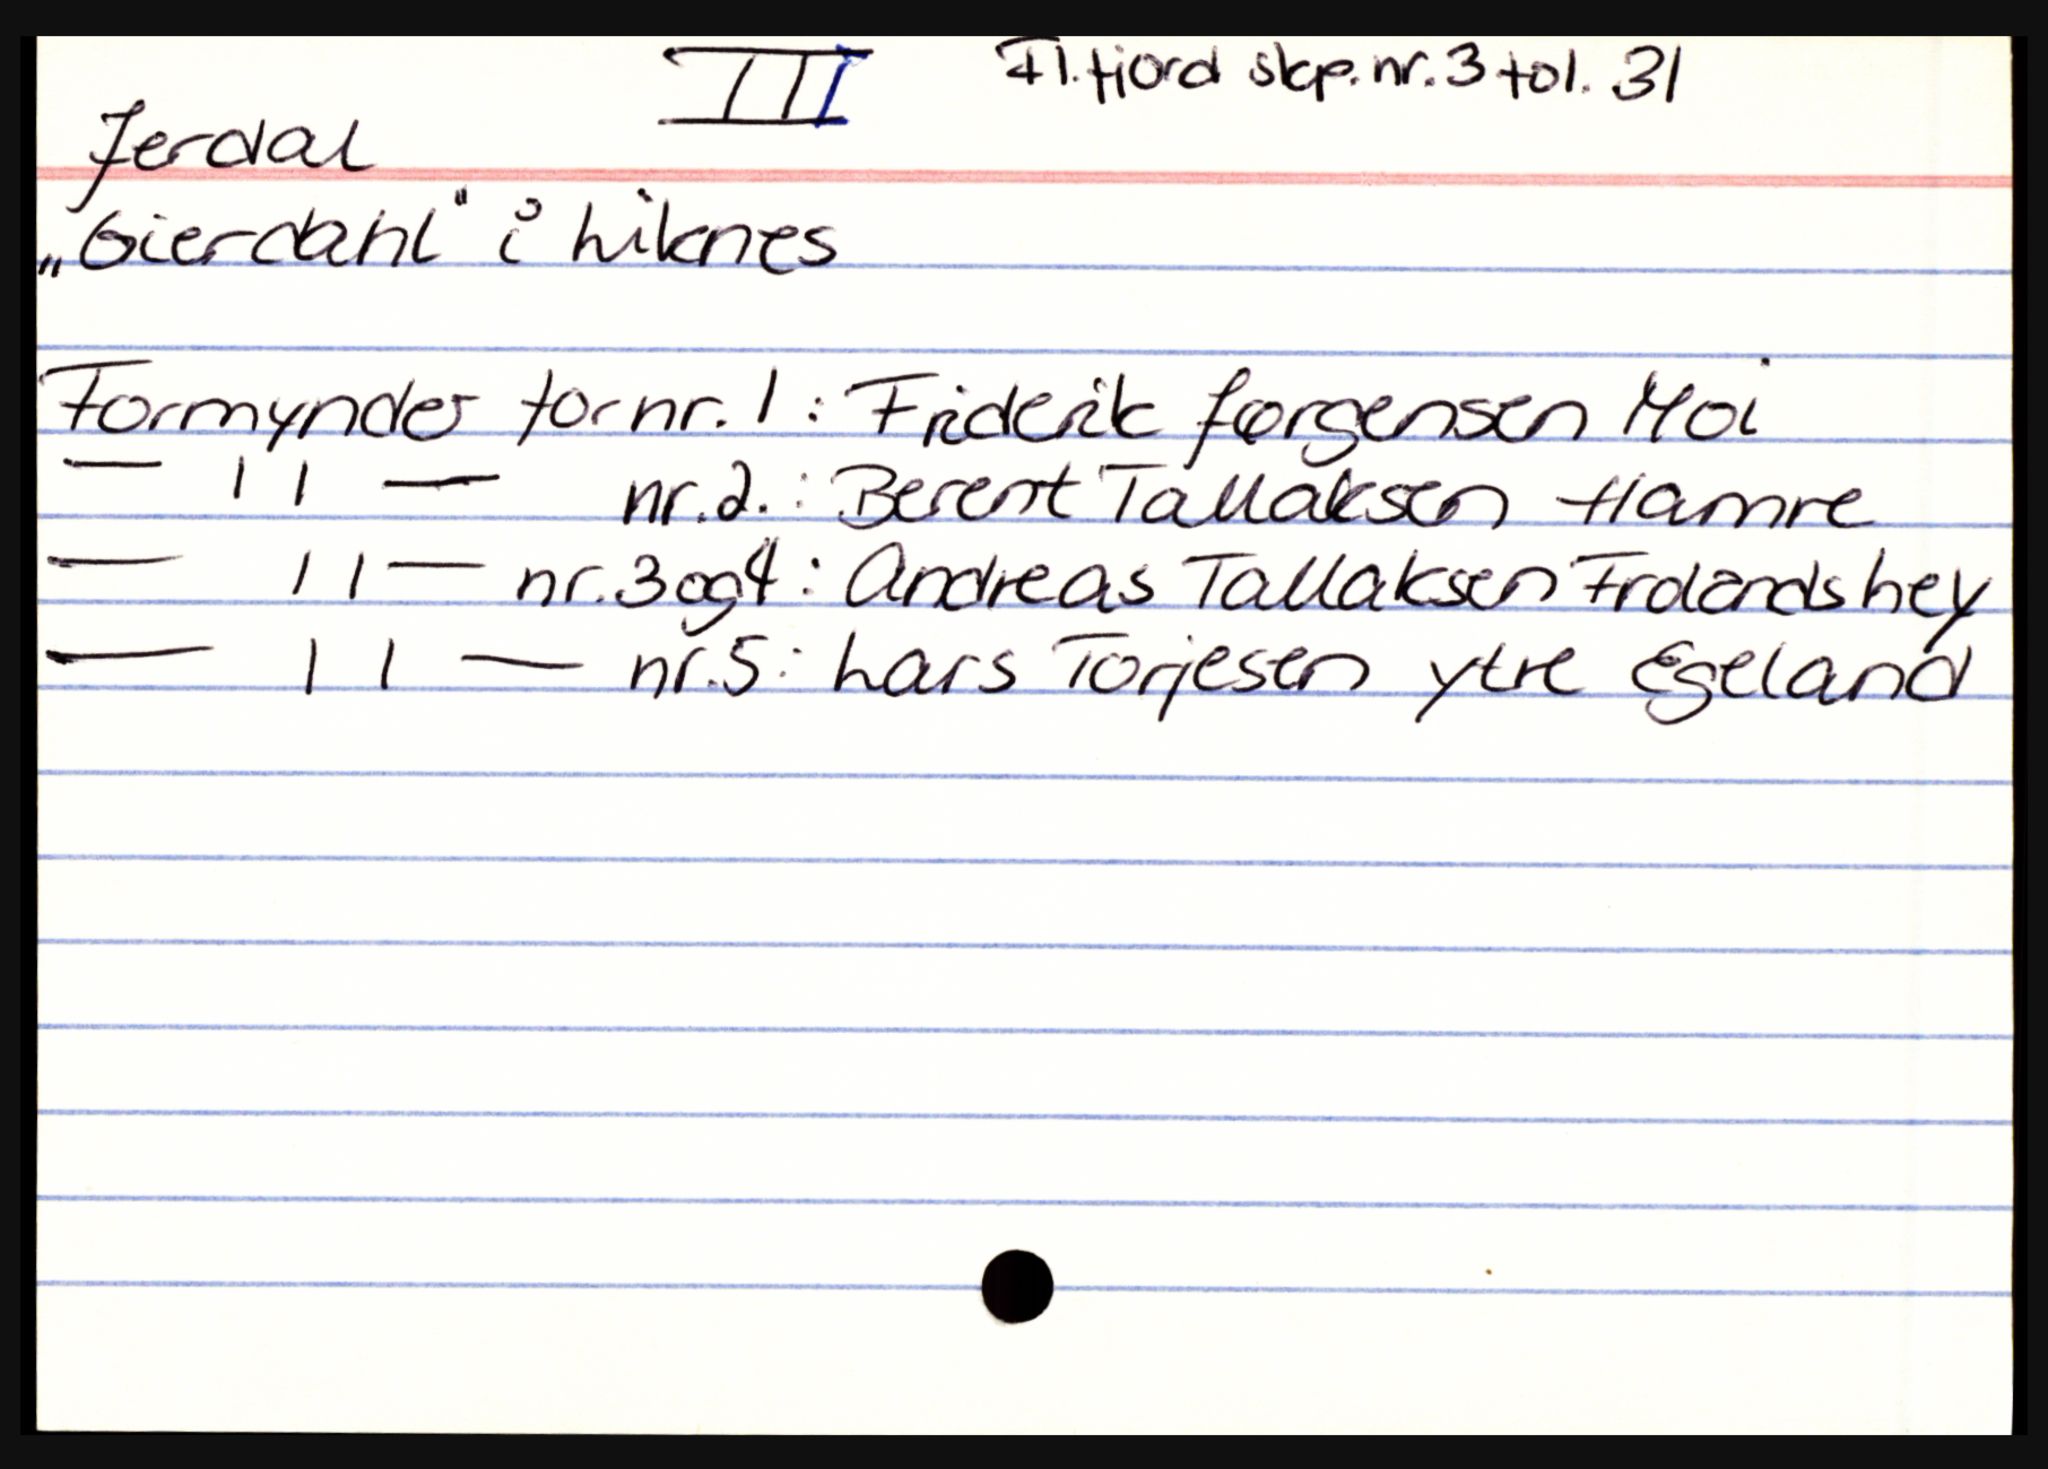 III Fl.fjord skp. nr. 3 fol. 31
Jerdal
„Gierdahl" i Liknes
Formynder for nr. 1 : Friderik Jørgensen Moi
— 11 — nr. 2. : Berent Tallaksen Hamre
— 11 — nr. 3 og 4 : Andreas Tallaksen Frolandshey
— 11 — nr. 5 : Lars Torjesen ytre Egeland